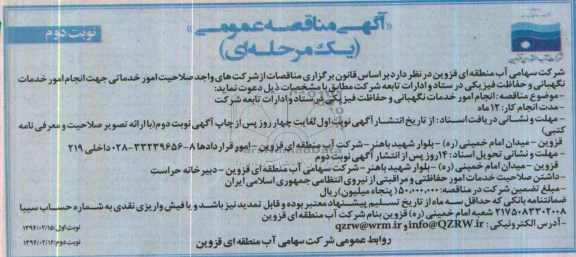 «آگهی مناقصه عمومی»
(یک مرحله‌ای)
نوبت دوم
شرکت سهامی آب منطقه‌ای قزوین در نظر دارد بر اساس قانون برگزاری مناقصات از شرکت های واجد صلاحیت امور خدماتی جهت انجام امور خدمات
نگهبانی و حفاظت فیزیکی در ستاد و ادارات تابعه شرکت مطابق با مشخصات ذیل دعوت نماید:
- موضوع مناقصه: انجام امور خدمات نگهبانی و حفاظت فیزیکی در ستاد و ادارات تابعه شرکت
- مدت انجام کار: ۱۲ ماه
- مهلت و نشانی دریافت اسناد: از تاریخ انتشار آگهی نوبت اول لغایت چهار روز پس از چاپ آگهی نوبت دوم (با ارائه تصویر صلاحیت و معرفی نامه
کتبی)
قزوین - میدان امام خمینی (ره) - بلوار شهید باهنر - شرکت آب منطقه‌ای قزوین - امور قراردادها ۸-۳۳۲۳۹۶۵۶-۰۲۸ داخلی ۲۱۹
- مهلت و نشانی تحویل اسناد: ۱۴ روز پس از انتشار آگهی نوبت دوم
قزوین - میدان امام خمینی (ره) - بلوار شهید باهنر - شرکت سهامی آب منطقه‌ای قزوین - دبیرخانه حراست
- داشتن صلاحیت خدمات امور حفاظتی و مراقبتی از نیروی انتظامی جمهوری اسلامی ایران
- مبلغ تضمین شرکت در مناقصه: ۵۰,۰۰۰,۰۰۰ (پنجاه میلیون) ریال
ضمانتنامه بانکی که حداقل سه ماه از تاریخ تسلیم پیشنهاد معتبر بوده و قابل تمدید نیز باشد و یا فیش واریزی نقدی به شماره حساب سیبا
۲۱۷۵۰۸۳۳۰۲۰۰۸ شعبه امام خمینی (ره) قزوین بنام شرکت آب منطقه‌ای قزوین
- آدرس الکترونیکی: info@QZRW.ir و qzrw@wrm.ir
نوبت اول: ۱۳۹۴/۰۲/۱۵
نوبت دوم: ۱۳۹۴/۰۲/۱۶
روابط عمومی شرکت سهامی آب منطقه‌ای قزوین